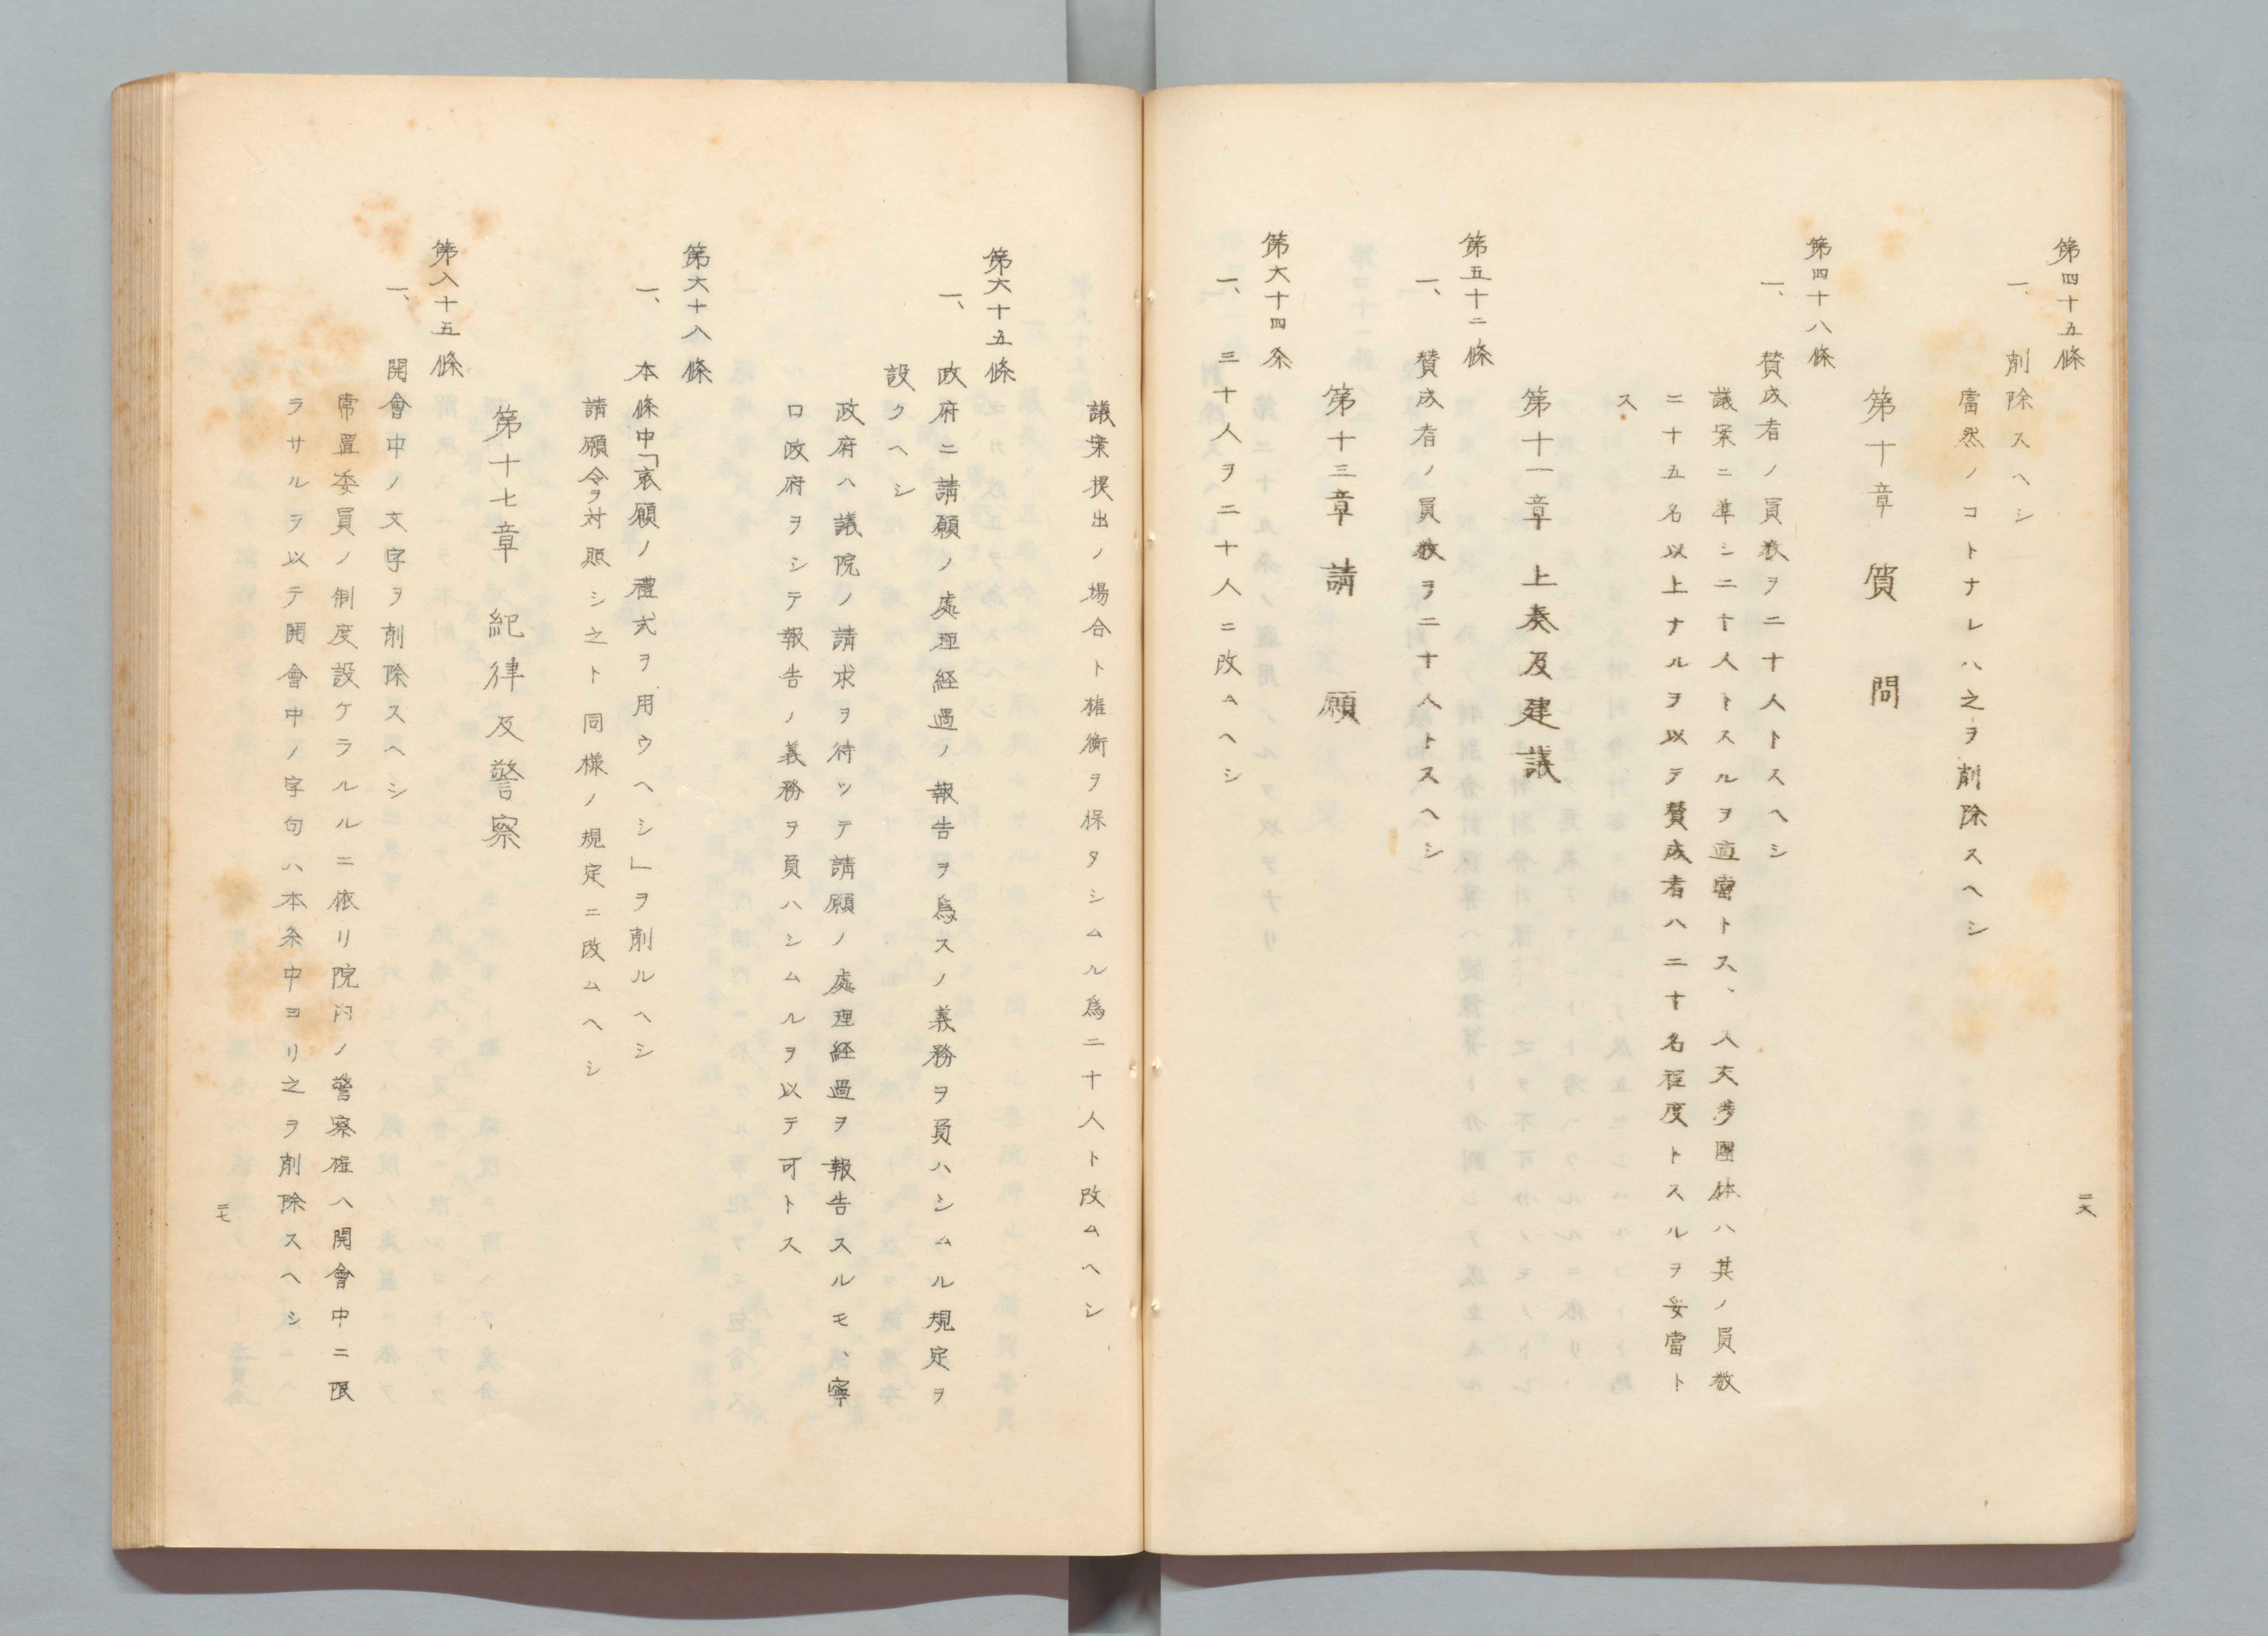 第四十五條
一、削除スヘシ
當然ノコトナレハ之ヲ削除スヘシ
第十章 質問
第四十八條
一、賛成者ノ員数ヲ二十人トスヘシ
議案ニ準シ二十人トスルヲ適當トス、人夫々團体ハ其ノ員数
二十五名以上ナルヲ以テ賛成者ハ二十名程度トスルヲ妥當ト
ス
第十一章 上奏及建議
第五十二條
一、賛成者ノ員数ヲ二十人トスヘシ
第十三章 請願
第六十四条
一、三十人ヲ二十人ニ改ムヘシ
二六
議案提出ノ場合ト権衡ヲ保タシムル爲二十人ト改ムヘシ
第六十五條
一、政府ニ請願ノ處理経過ノ報告ヲ爲スノ義務ヲ負ハシムル規定ヲ
設クヘシ
政府ハ議院ノ請求ヲ待ツテ請願ノ處理経過ヲ報告スルモ、寧
ロ政府ヲシテ報告ノ義務ヲ負ハシムルヲ以テ可トス
第六十八條
一、本條中「哀願ノ禮式ヲ用ウヘシ」ヲ削ルヘシ
請願令ヲ対照シ之ト同様ノ規定ニ改ムヘシ
第十七章 紀律及警察
第八十五條
一、開會中ノ文字ヲ削除スヘシ
常置委員ノ制度設ケラルルニ依リ院内ノ警察権ハ開會中ニ限
ラサルヲ以テ開會中ノ字句ハ本条中ヨリ之ヲ削除スヘシ
二七